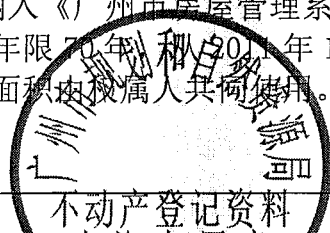 纳入《广州市房屋管理系
年限70年，从2011年1
面积由权属人共同使用。
广州市规划和自然资源局
不动产登记资料